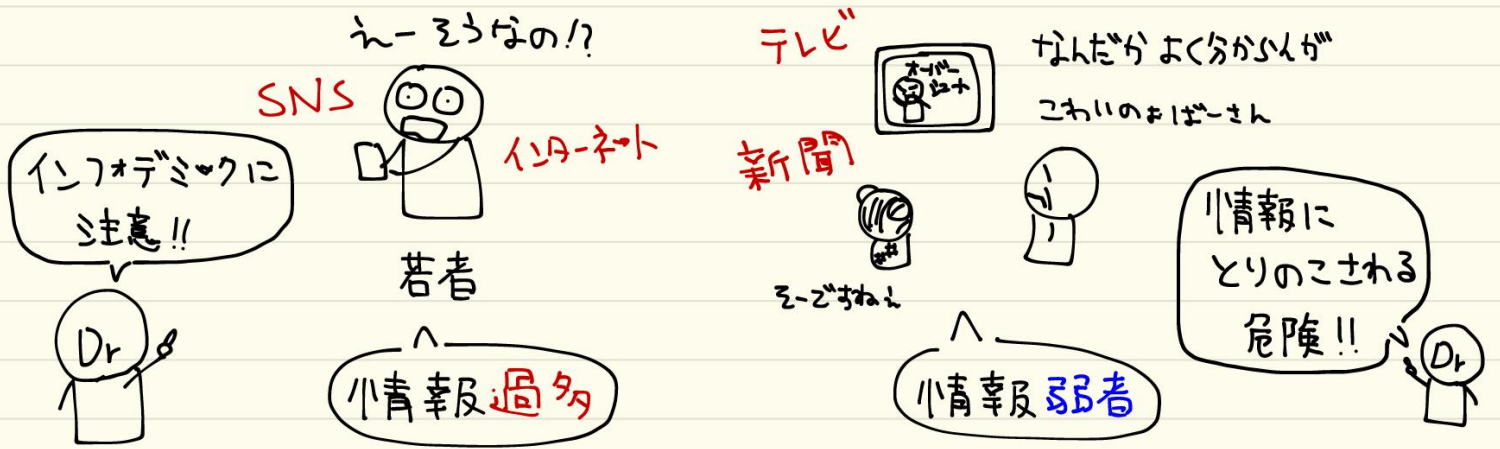 えーそうなの!?
SNS
インターネット
インフォデミックに
注意!!
Dr
若者
情報過多
テレビ
オーバー
シュート
新聞
なんだかよく分からんが
こわいのぉばーさん
そーですねぇ
情報弱者
情報に
とりのこされる
危険!!
Dr